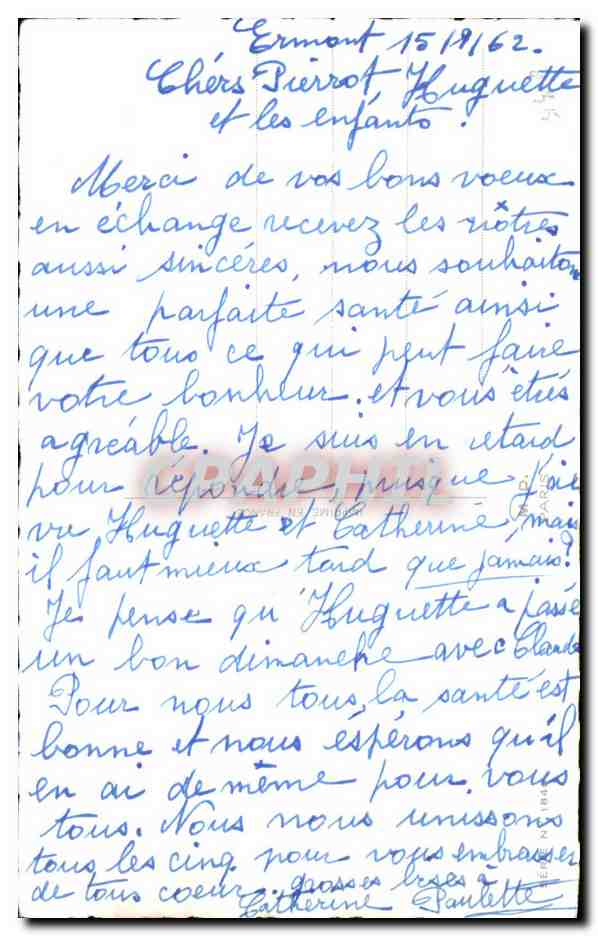 Ermont 15/1/62.
Chérs Pierrot, Huguette
et les enfants.
Merci de vos bons voeux
en échange recevez les nôtres
aussi sincéres, nous souhaitons
une parfaite santé ainsi
que tous ce qui peut faire
votre bonheur. et vous êtrés
agréable. Je suis en retard
pour répondre, puisque j'ai
vu Huguette et Catherine, mais
il faut mieux tard que jamais?
Je pense qu'Huguette a passé
un bon dimanche avec Claude
Pour nous tous, la santé est
bonne et nous éspérons qu'il
en ai de même pour vous
tous. Nous nous unissons
tous les cinq pour vous embrasser
de tous coeur. grosses bises à
Catherine Paulette
CPAPHIL
IMPRIMÉ EN FRANCE
M.D.
PARIS
SÉRIE N° 184